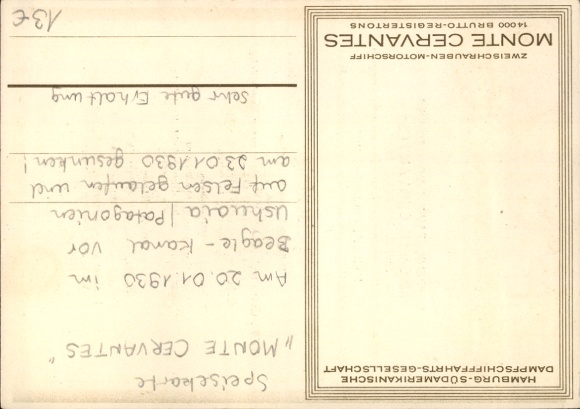 HAMBURG-SÜDAMERIKANISCHE
DAMPFSCHIFFFAHRTS-GESELLSCHAFT
ZWEISCHRAUBEN-MOTORSCHIFF
MONTE CERVANTES
14000 BRUTTO-REGISTERTONS
Speisekarte
„MONTE CERVANTES"
Am 20.01.1930 im
Beagle-Kanal vor
Ushuaia / Patagonien
auf Felsen gelaufen und
am 23.01.1930 gesunken!
sehr gute Erhaltung
13€